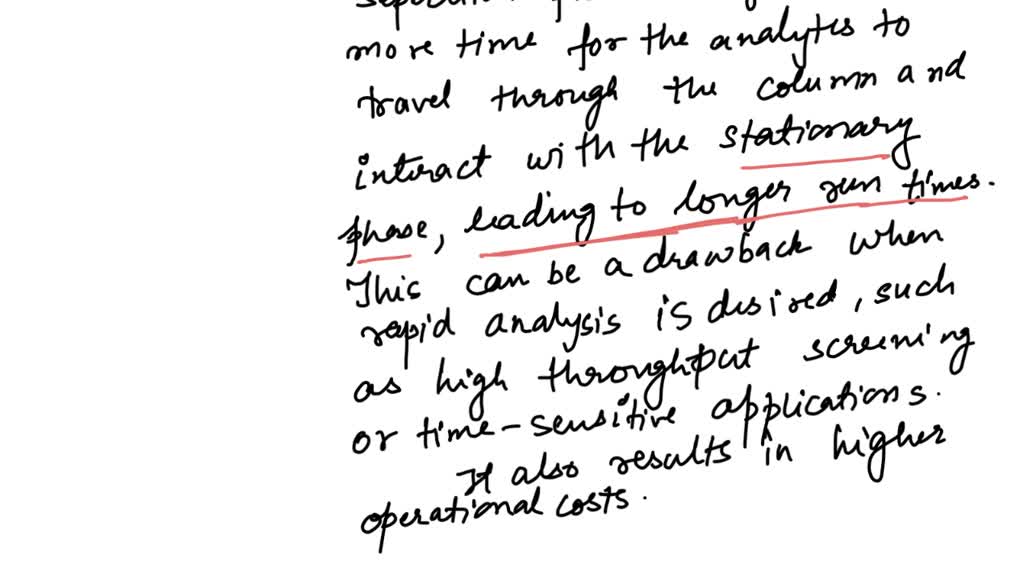 more time for the analytes to
travel through the column and
interact with the stationary
phase, leading to longer run times.
This can be a drawback when
rapid analysis is desired, such
as high throughput screening
or time-sensitive applications.
It also results in higher
operational costs.